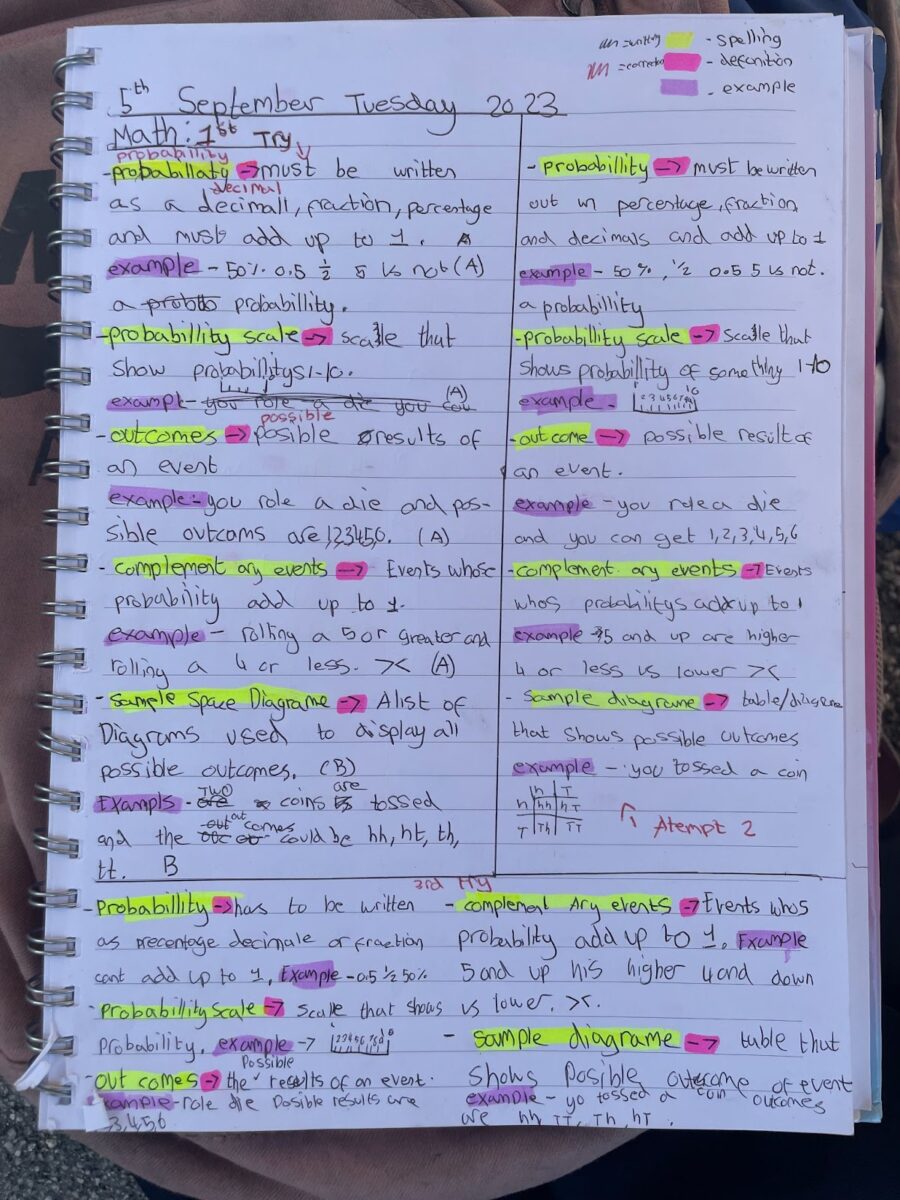 = writing - spelling
= correction - definition
- example
5th September Tuesday 2023
Math: 1st Try
probabillity
- probabillaty -> must be written
decimal
as a decimall, fraction, percentage
and must add up to 1. A
example - 50% 0.5 1/2 5 is not (A)
a probabillity.
- probabillity scale -> scalle that
show probabillitys 1-10.
exampl - you role a die you can (A)
possible
- outcomes -> posible results of
an event
example - you role a die and pos-
sible outcoms are 1,2,3,4,5,6. (A)
- complement ary events -> Events whose
probability add up to 1.
example - rolling a 5 or greater and
rolling a 4 or less. >< (A)
- Sample Space Diagrame -> A list of
Diagrams used to display all
possible outcomes. (B)
Exampls - Two coins are tossed
and the out comes could be hh, ht, th,
tt. B
- probabillity -> must be written
out in percentage, fraction
and decimals and add up to 1
example - 50%, 1/2 0.5 5 is not.
a probabillity
- probabillity scale -> Scalle that
shows probability of something 1-10
example - 1 2 3 4 5 6 7 8 9 10
- out come -> possible result of
an event.
example - you role a die
and you can get 1,2,3,4,5,6
- complement ary events -> Events
whos probabilitys add up to 1
example - 5 and up are higher
4 or less is lower ><
- Sample diagrame -> table/diagrame
that shows possible outcomes
example - you tossed a coin
h T
h hh hT
T Th TT
Atempt 2
3rd try
- Probabillity -> has to be written
as precentage decimale or fraction
cant add up to 1, Example - 0.5 1/2 50%
- Probability scale -> scalle that shows
Probability. example -> 1 2 3 4 5 6 7 8 9 10
Possible
- out comes -> the results of an event.
Example - role die Posible results are
3,4,5,6
- complement Ary events -> Events whos
probability add up to 1. Example
5 and up his higher 4 and down
is lower. ><.
- Sample diagrame -> table that
Shows Posible outcome of event
example - yo tossed a coin outcomes
are hh, TT, Th, hT.